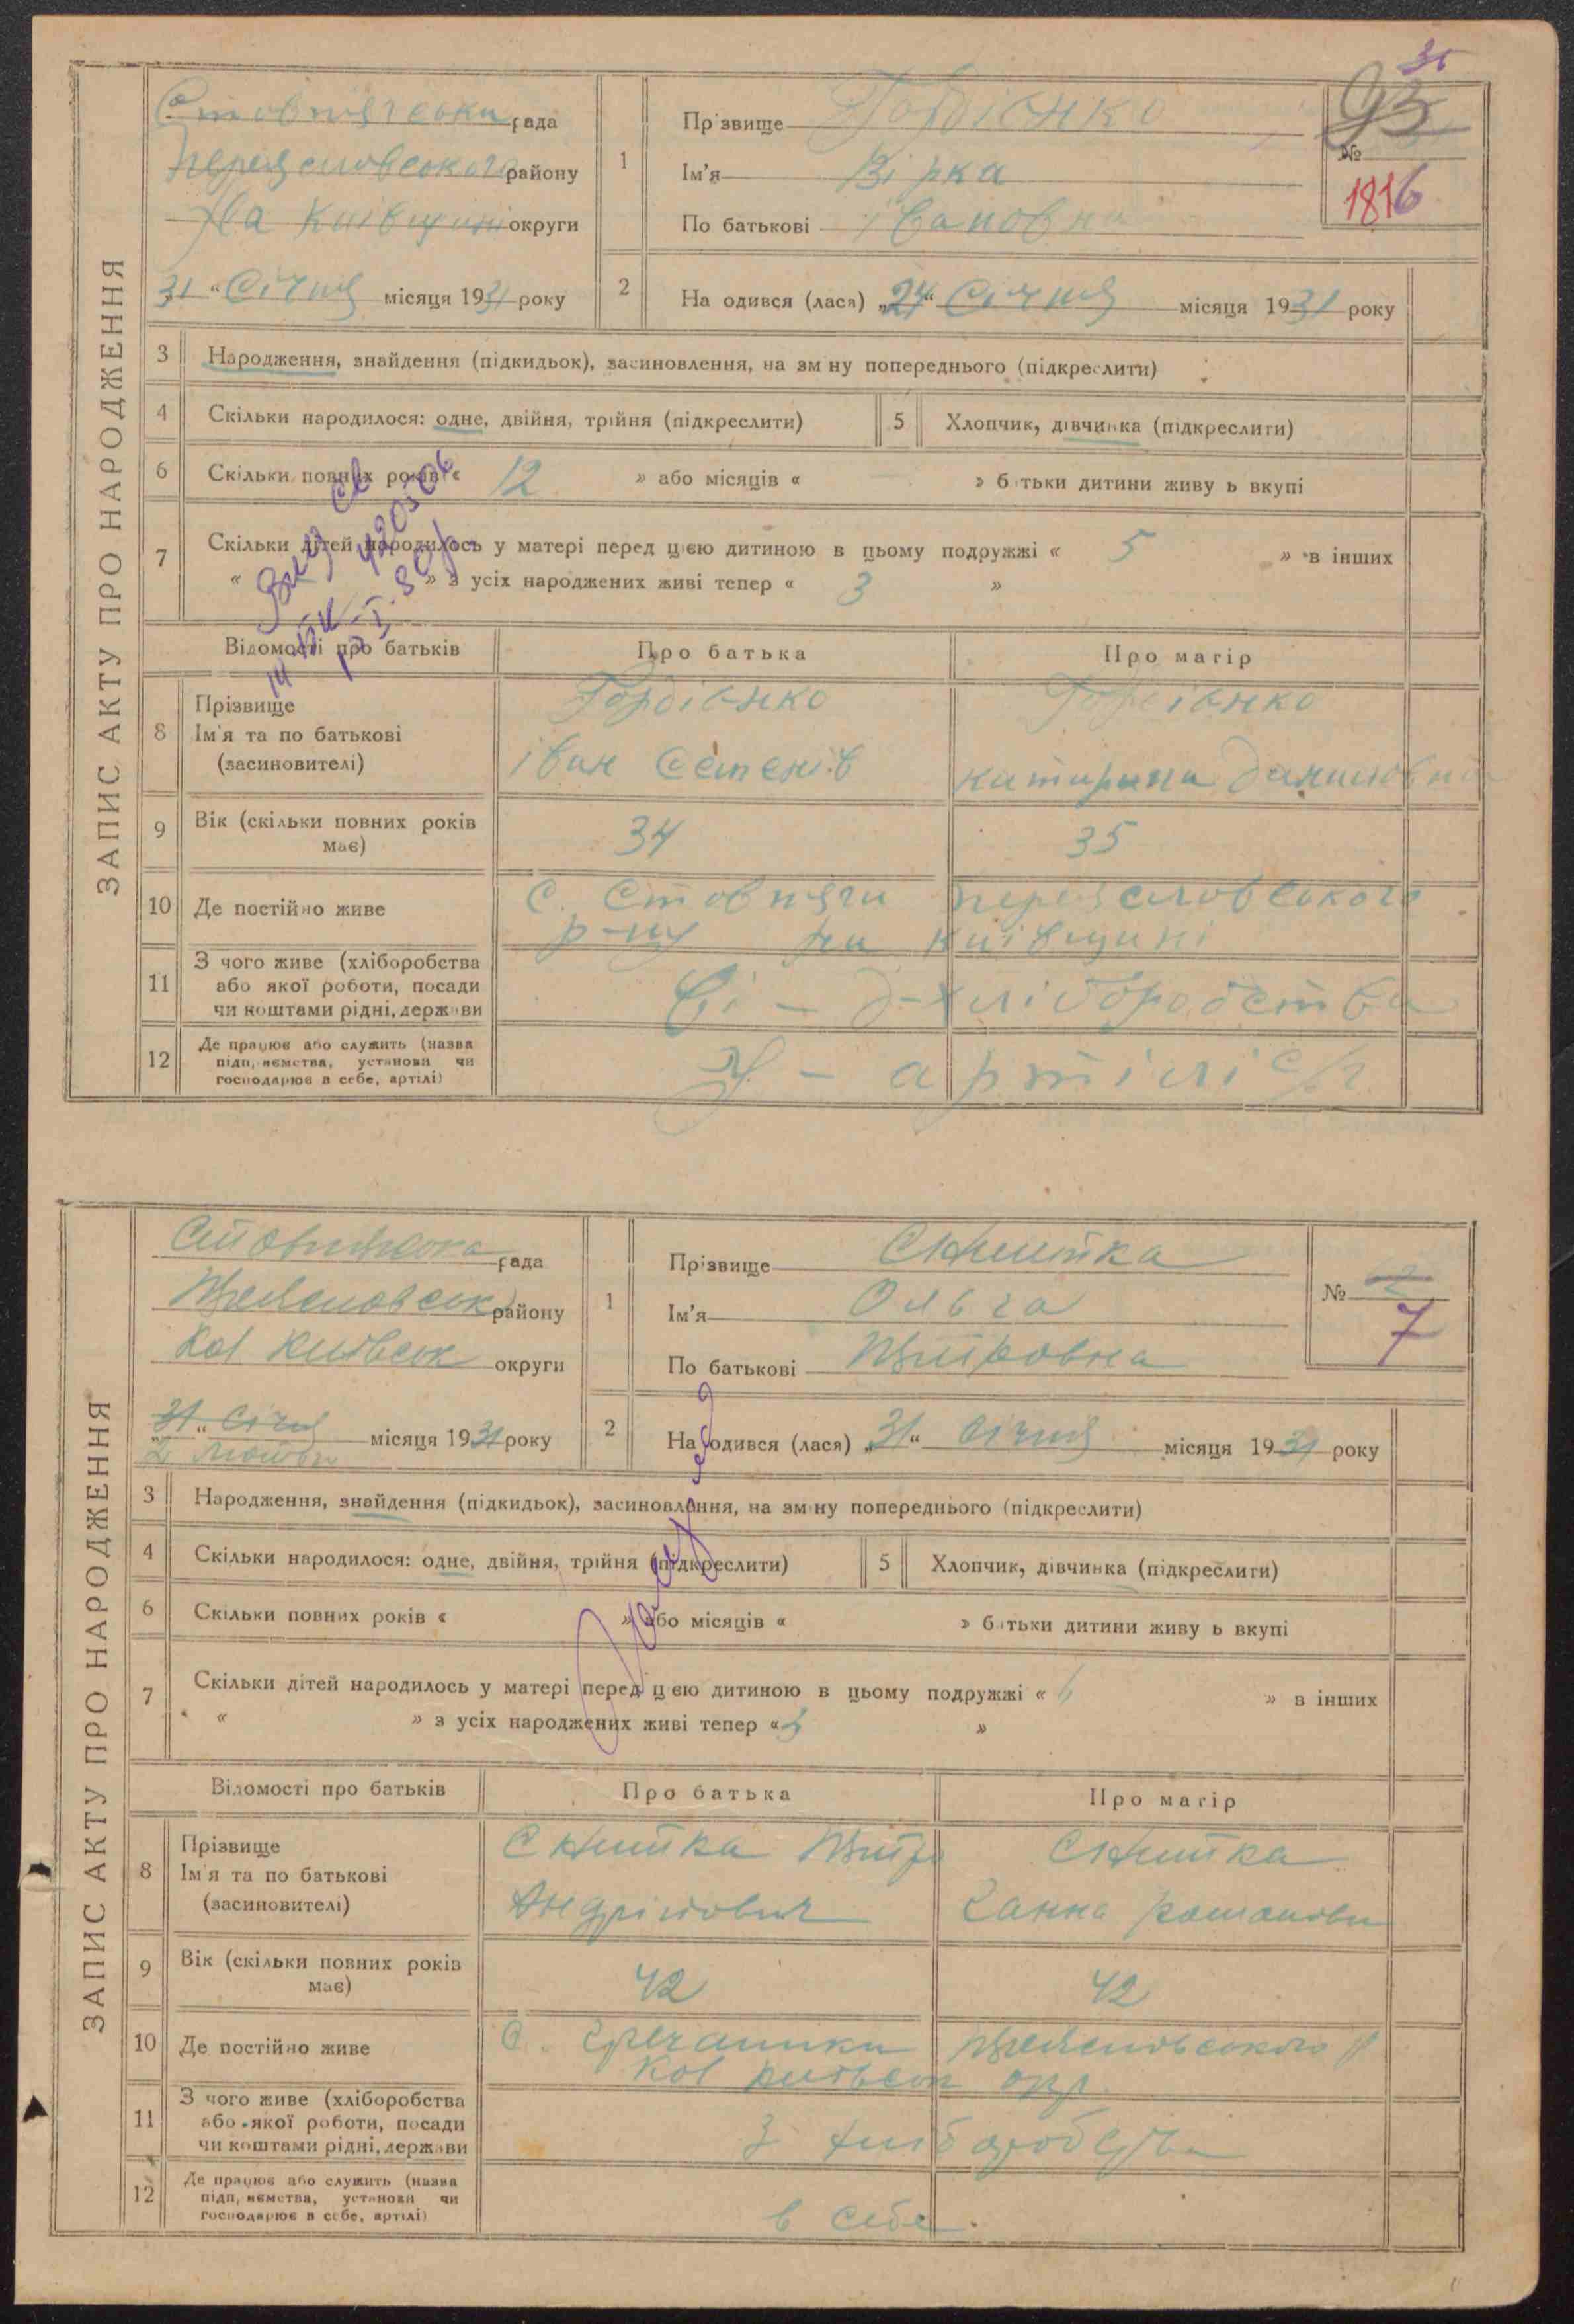 ЗАПИС АКТУ ПРО НАРОДЖЕННЯ
35
93
Стовпягська рада
Переяславського району
На Київщині округи
„31“ Січня місяця 1931 року
1
Прізвище Гордієнко
Ім'я Вірка
По батькові Івановна
№
1816
2
Народився (лася) „24“ Січня місяця 1931 року
3 Народження, знайдення (підкидьок), засиновлення, на зміну попереднього (підкреслити)
4 Скільки народилося: одне, двійня, трійня (підкреслити)
5 Хлопчик, дівчинка (підкреслити)
6 Скільки повних років « 12 » або місяців « » батьки дитини живуть вкупі
7 Скільки дітей народилось у матері перед цією дитиною в цьому подружжі « 5 » в інших
« » з усіх народжених живі тепер « 3 »
Відомості про батьків
Про батька
Про матір
8 Прізвище
Ім'я та по батькові
(засиновителі)
Гордієнко
Іван Семенів
Гордієнко
катирина Даниловна
9 Вік (скільки повних років має)
34
35
10 Де постійно живе
с. Стовпяги Переяславського
р-ну на Київщині
11 З чого живе (хліборобства
або якої роботи, посади
чи коштами рідні, держави
Сі-д-хліборобства
12 Де працює або служить (назва
підприємства, установи чи
господарює в себе, артілі)
У - артілі с/г.
ЗАПИС АКТУ ПРО НАРОДЖЕННЯ
рада
району
Кол Київськ округи
„31“ Січня
2 Лютого місяця 1931 року
1
Прізвище Скнитка
Ім'я Ольга
По батькові
№
7
2
Народився (лася) „31“ Січня місяця 1931 року
3 Народження, знайдення (підкидьок), засиновлення, на зміну попереднього (підкреслити)
4 Скільки народилося: одне, двійня, трійня (підкреслити)
5 Хлопчик, дівчинка (підкреслити)
6 Скільки повних років « » або місяців « » батьки дитини живуть вкупі
7 Скільки дітей народилось у матері перед цією дитиною в цьому подружжі « » в інших
« » з усіх народжених живі тепер « »
Відомості про батьків
Про батька
Про матір
8 Прізвище
Ім'я та по батькові
(засиновителі)
Скнитка
Андрійович
Скнитка
Ганна
9 Вік (скільки повних років має)
42
42
10 Де постійно живе
С. Гречаники
Кол Київськ окр
11 З чого живе (хліборобства
або якої роботи, посади
чи коштами рідні, держави
З хліборобства
12 Де працює або служить (назва
підприємства, установи чи
господарює в себе, артілі)
в себе.